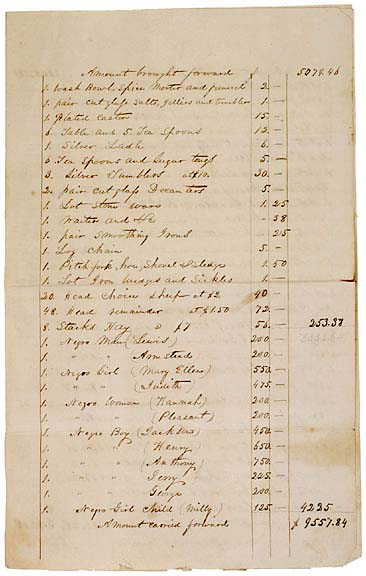 Amount brought forward $ 5079.46
1. Wash Bowl, Spice Morter and funnel 2. —
1. pair cut glass salts, Jellies and tumbler 1. —
1. Plated Castor 15. —
6. Table and 5. Tea Spoons 12. —
1. Silver Ladle 6. —
6. Tea Spoons and Sugar tugs 5. —
3. Silver Tumblers at 10. 30. —
2. pair Cut glass Decanters 5. —
1. Lot Stone ware 1. 25
1. Waiter and — 38
1. pair Smoothing Irons — 25
1. Log Chain 5. —
1. Pitchfork, hoe, Shovel & Sledge 1. 50
1. Lot Iron wedges and Sickles 1. —
20. Head Choice Sheep at $2 40 —
48. Head remainder at $1.50 72. —
8. Stacks Hay " $7 56. — 253.38
1. Negro Man (Lewis) 200. —
1. " " Armstead 200. —
1. Negro Girl (Mary Ellen) 550. —
1. " " (Judith 475. —
1. Negro Woman (Hannah) 200. —
1. " " (Pleasant) 200. —
1. Negro Boy ( 450. —
1. " " (Henry 650. —
1. " " (Anthony) 750. —
1. " " (Jerry 225. —
1. " " George 200. —
1. Negro Girl Child (Milly) 125. — 4225
Amount carried forward $ 9557.84